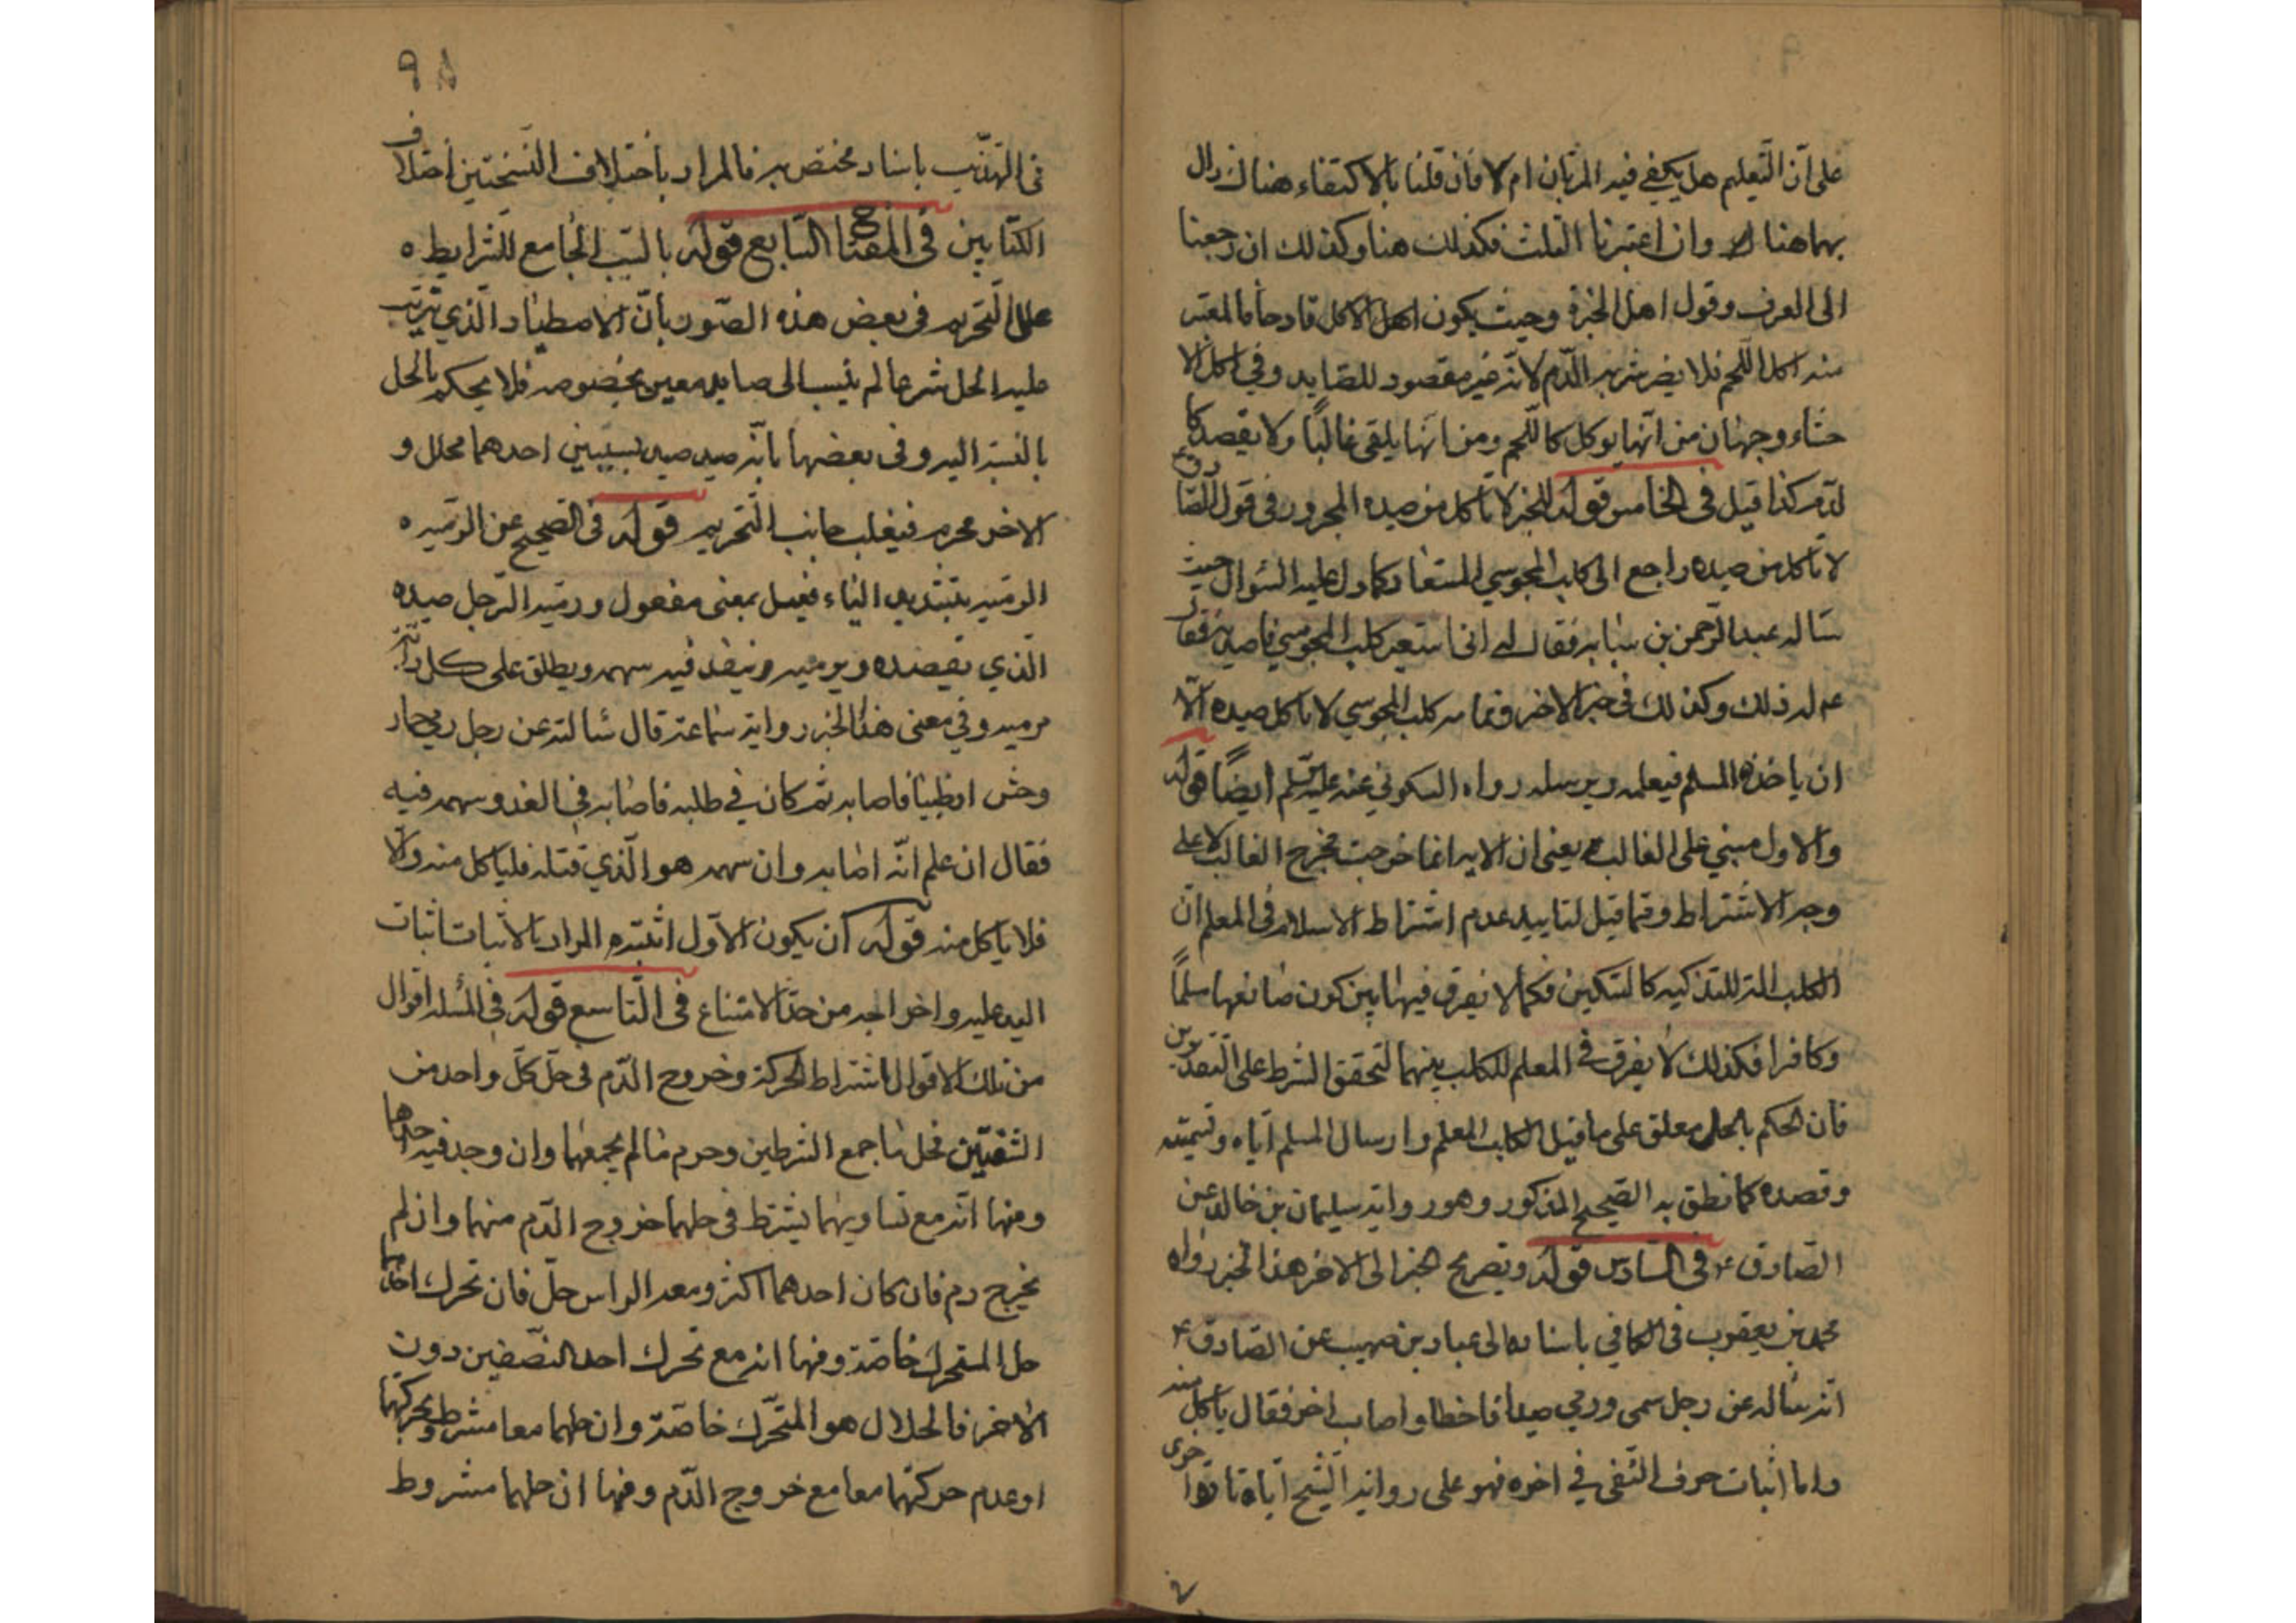 على ان التعليم هل يكفي فيه المرتان ام لا فان قلنا بالاكتفاء هناك زال
بهما هنا وان اعتبرنا الثلث فكذلك هنا وكذلك ان رجعنا
الى العرف وقول اهل الخبرة وحيث يكون الاكل قادحا فالمعتبر
منه اكل اللحم فلا يضر شربه الدم لانه غير مقصود للصايد وفي اكل الا
حشاء وجهان من انها يوكل كاللحم ومن انها يلقى غالبًا ولا يقصد كا
لدم كذا قيل في الخامس قوله للخبر لا تاكل من صيده المجرور في قول الصادق ع
لا تاكل من صيده راجع الى كلب المجوسي المستعار كما دل عليه السئوال حيث
ساله عبد الرحمن بن سيابه فقال له اني استعير كلب المجوسي فاصيد به فقال
ع له ذلك وكذلك في خبر الاخر وتمامه كلب المجوسي لا تاكل صيده الا
ان ياخذه المسلم فيعلمه ويرسله رواه السكوني عنه عليه السلم ايضًا قوله
والاول مبني على الغالب يعني ان الاية انما خرجت مخرج الغالب لا على
وجه الاشتراط ومما قيل لتاييد عدم اشتراط الاسلام في المعلم ان
الكلب الة للتذكيه كالسكين فكما لا يفرق فيها بين كون صانعها مسلمًا
وكافرا فكذلك لا يفرق في المعلم للكلب بينهما لتحقق الشرط على التقديرين
فان الحكم بالحل معلق على ما قتل الكلب المعلم وارسال المسلم اياه وتسميته
وقصده كما نطق به الصحيح المذكور وهو رواية سليمان بن خالد عن
الصادق ع في السادس قوله وتصريح الخبر الى الاخر هذا الخبر رواه
محمد بن يعقوب في الكافي باسناده الى عباد بن صهيب عن الصادق ع
انه ساله عن رجل سمى ورمي صيدا فاخطا واصاب اخر فقال ياكل منه
واما اثبات حرف النفي في اخره فهو على رواية الشيخ اياه تارة اخرى
٩٨
في التهذيب باسناد مختص به فالمراد باختلاف النسختين اختلاف
الكتابين في المفتاح السابع قوله بالسبب الجامع للشرايط
علل التحريم في بعض هذه الصور بان الاصطياد الذي يترتب
عليه الحل شرعا لم ينسب الى صايد معين بخصوصه فلا يحكم بالحل
بالنسبة اليه وفي بعضها بانه صيد صيد بسببين احدهما محلل و
الاخر محرم فيغلب جانب التحريم قوله في الصحيح عن الرميه
الرميه بتشديد الياء فعيل بمعنى مفعول ورمية الرجل صيده
الذي يقصده ويرميه وينفذ فيه سهمه ويطلق على كل دابة
مرميه وفي معنى هذا الخبر رواية سماعة قال سئالته عن رجل رمي حمار
وحش او ظبيا فاصابه ثم كان في طلبه فاصابه في الغد وسهمه فيه
فقال ان علم انه اصابه وان سهمه هو الذي قتله فلياكل منه والا
فلا ياكل منه قوله ان يكون الاول اثبته المراد بالاثبات اثبات
اليد عليه واخراجه من حد الامتناع في التاسع قوله في المسئلة اقوال
من تلك الاقوال اشتراط الحركة وخروج الدم في حل كل واحد من
الشقين فحل ما جمع الشرطين وحرم ما لم يجمعهما وان وجد فيه احدهما
ومنها انه مع تساويهما يشترط في حلهما خروج الدم منهما وان لم
يخرج دم فان كان احدهما اكثر ومعه الراس حل فان تحرك احدهما
حل المتحرك خاصة ومنها انه مع تحرك احد النصفين دون
الاخر فالحلال هو المتحرك خاصة وان حلهما معا مشروط بحركتهما
او عدم حركتهما معا مع خروج الدم ومنها ان حلهما مشروط